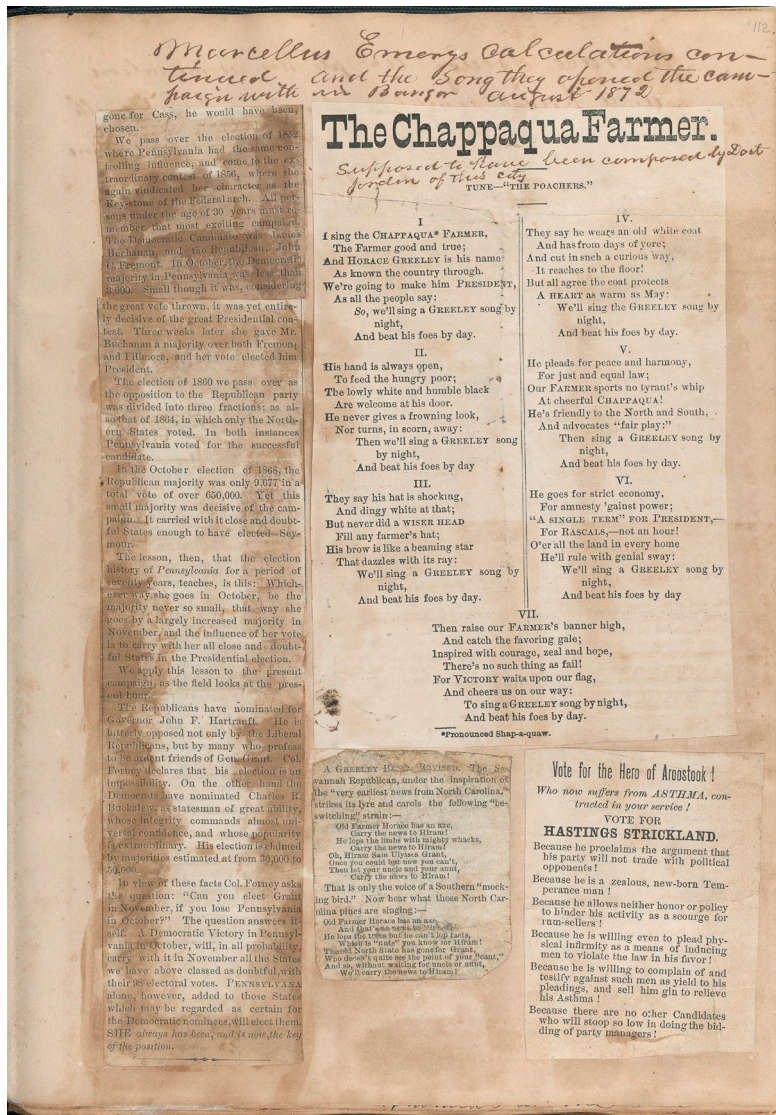 112.
Marcellus Emerys calculations con-
tinued and the Song they opened the cam-
paign with in Bangor August 1872
gone for Cass, he would have been,
chosen.
We pass over the election of 1852
where Pennsylvania had the same con-
trolling influence, and come to the ex-
traordinary contest of 1856, where she
again vindicated her character as the
Key-stone of the Federal arch. All per-
sons under the age of 30 years must re-
member that most exciting campaign.
The Democratic Candidate was James
Buchanan, and the Republican, John
C. Fremont. In October, the Democratic
majority in Pennsylvania was less than
3,000. Small though it was, considering
the great vote thrown, it was yet entire-
ly decisive of the great Presidential con-
test. Three weeks later she gave Mr.
Buchanan a majority over both Fremont
and Fillmore, and her vote elected him
President.
The election of 1860 we pass over as
the opposition to the Republican party
was divided into three fractions; as al-
so that of 1864, in which only the North-
ern States voted. In both instances
Pennsylvania voted for the successful
candidate.
In the October election of 1868, the
Republican majority was only 9,677 in a
total vote of over 650,000. Yet this
small majority was decisive of the cam-
paign. It carried with it close and doubt-
ful States enough to have elected Sey-
mour.
The lesson, then, that the election
history of Pennsylvania for a period of
seventy years, teaches, is this: Which-
ever way she goes in October, be the
majority never so small, that way she
goes by a largely increased majority in
November, and the influence of her vote
is to carry with her all close and doubt-
ful States in the Presidential election.
We apply this lesson to the present
campaign, as the field looks at the pres-
ent hour.
The Republicans have nominated for
Governor John F. Hartranft. He is
bitterly opposed not only by the Liberal
Republicans, but by many who profess
to be ardent friends of Gen. Grant. Col.
Forney declares that his election is an
impossibility. On the other hand the
Democrats have nominated Charles R.
Buckalew, as statesman of great ability,
whose integrity commands almost uni-
versal confidence, and whose popularity
is extraordinary. His election is claimed
by majorities estimated at from 30,000 to
50,000.
In view of these facts Col. Forney asks
the question: "Can you elect Grant
in November, if you lose Pennsylvania
in October?" The question answers it-
self. A Democratic Victory in Pennsyl-
vania in October, will, in all probability,
carry with it in November all the States
we have above classed as doubtful, with
their 98 electoral votes. PENNSYLVANIA
alone, however, added to those States
which may be regarded as certain for
the Democratic nominees, will elect them.
SHE always has been, and is now, the key
of the position.
The Chappaqua Farmer.
Supposed to have been composed by Doct
Jordin of this city
TUNE—"THE POACHERS."
I
I sing the CHAPPAQUA* FARMER,
The Farmer good and true;
And HORACE GREELEY is his name
As known the country through.
We're going to make him PRESIDENT,
As all the people say:
So, we'll sing a GREELEY song by
night,
And beat his foes by day.
II.
His hand is always open,
To feed the hungry poor;
The lowly white and humble black
Are welcome at his door.
He never gives a frowning look,
Nor turns, in scorn, away:
Then we'll sing a GREELEY song
by night,
And beat his foes by day
III.
They say his hat is shocking,
And dingy white at that;
But never did a WISER HEAD
Fill any farmer's hat;
His brow is like a beaming star
That dazzles with its ray:
We'll sing a GREELEY song by
night,
And beat his foes by day.
IV.
They say he wears an old white coat
And has from days of yore;
And cut in such a curious way,
It reaches to the floor!
But all agree the coat protects
A HEART as warm as May:
We'll sing the GREELEY song by
night,
And beat his foes by day.
V.
He pleads for peace and harmony,
For just and equal law;
Our FARMER sports no tyrant's whip
At cheerful CHAPPAQUA!
He's friendly to the North and South,
And advocates "fair play:"
Then sing a GREELEY song by
night,
And beat his foes by day.
VI.
He goes for strict economy,
For amnesty 'gainst power;
"A SINGLE TERM" FOR PRESIDENT,—
For RASCALS,—not an hour!
O'er all the land in every home
He'll rule with genial sway:
We'll sing a GREELEY song by
night,
And beat his foes by day
VII.
Then raise our FARMER'S banner high,
And catch the favoring gale;
Inspired with courage, zeal and hope,
There's no such thing as fail!
For VICTORY waits upon our flag,
And cheers us on our way:
To sing a GREELEY song by night,
And beat his foes by day.
*Pronounced Shap-a-quaw.
A GREELEY REVISED. The Sa-
vannah Republican, under the inspiration of
the "very earliest news from North Carolina,"
strikes its lyre and carols the following "be-
witching" strain:—
Old Farmer Horace has an axe,
Carry the news to Hiram!
He lops the limbs with mighty whacks,
Carry the news to Hiram!
Oh, Hiram Sam Ulysses Grant,
Once you could but now you can't,
Then let your uncle and your aunt,
Carry the news to Hiram!
That is only the voice of a Southern "mock-
ing bird." Now hear what those North Car-
olina pines are singing:—
Old Farmer Horace has an axe,
And that's
He lops the trees but he can't lop facts,
Which is "nuts" you know for Hiram!
The old North State has gone for Grant,
Who doesn't quite see the point of your "cant,"
And so, without waiting for uncle or aunt,
We'll carry the news to Hiram!
Vote for the Hero of Aroostook!
Who now suffers from ASTHMA, con-
tracted in your service!
VOTE FOR
HASTINGS STRICKLAND.
Because he proclaims the argument that
his party will not trade with political
opponents!
Because he is a zealous, new-born Tem-
perance man!
Because he allows neither honor or policy
to hinder his activity as a scourge for
rum-sellers!
Because he is willing even to plead phy-
sical infirmity as a means of inducing
men to violate the law in his favor!
Because he is willing to complain of and
testify against such men as yield to his
pleadings, and sell him gin to relieve
his Asthma!
Because there are no other Candidates
who will stoop so low in doing the bid-
ding of party managers!